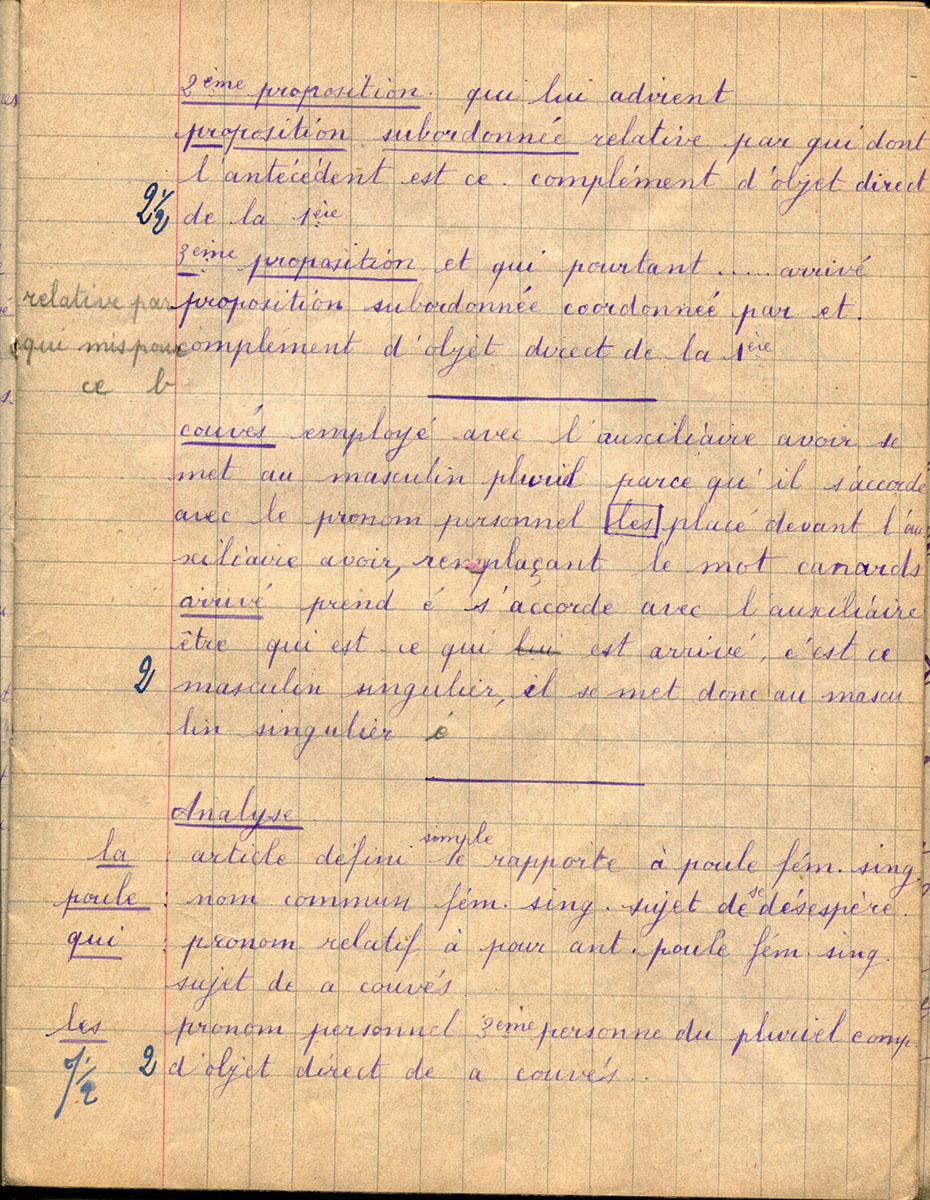 2ème proposition. qui lui advient
proposition subordonnée relative par qui dont
l'antécédent est ce. complément d'objet direct
2 1/2 de la 1ère
3ème proposition et qui pourtant ..... arrivé
relative par proposition subordonnée coordonnée par et.
qui mis pour complément d'objet direct de la 1ère
ce
couvés employé avec l'auxiliaire avoir se
met au masculin pluriel parce qu'il s'accorde
avec le pronom personnel les placé devant l'au
xiliaire avoir, remplaçant le mot canards
arrivé prend é s'accorde avec l'auxiliaire
être qui est ce qui lui est arrivé, c'est ce
2 masculin singulier, il se met donc au mascu
lin singulier é
Analyse
la : article défini simple se rapporte à poule fém. sing.
poule : nom commun fém. sing. sujet de se désespère.
qui : pronom relatif à pour ant. poule fém. sing.
sujet de a couvés
les pronom personnel 3ème personne du pluriel comp.
7 1/2 2 d'objet direct de a couvés..